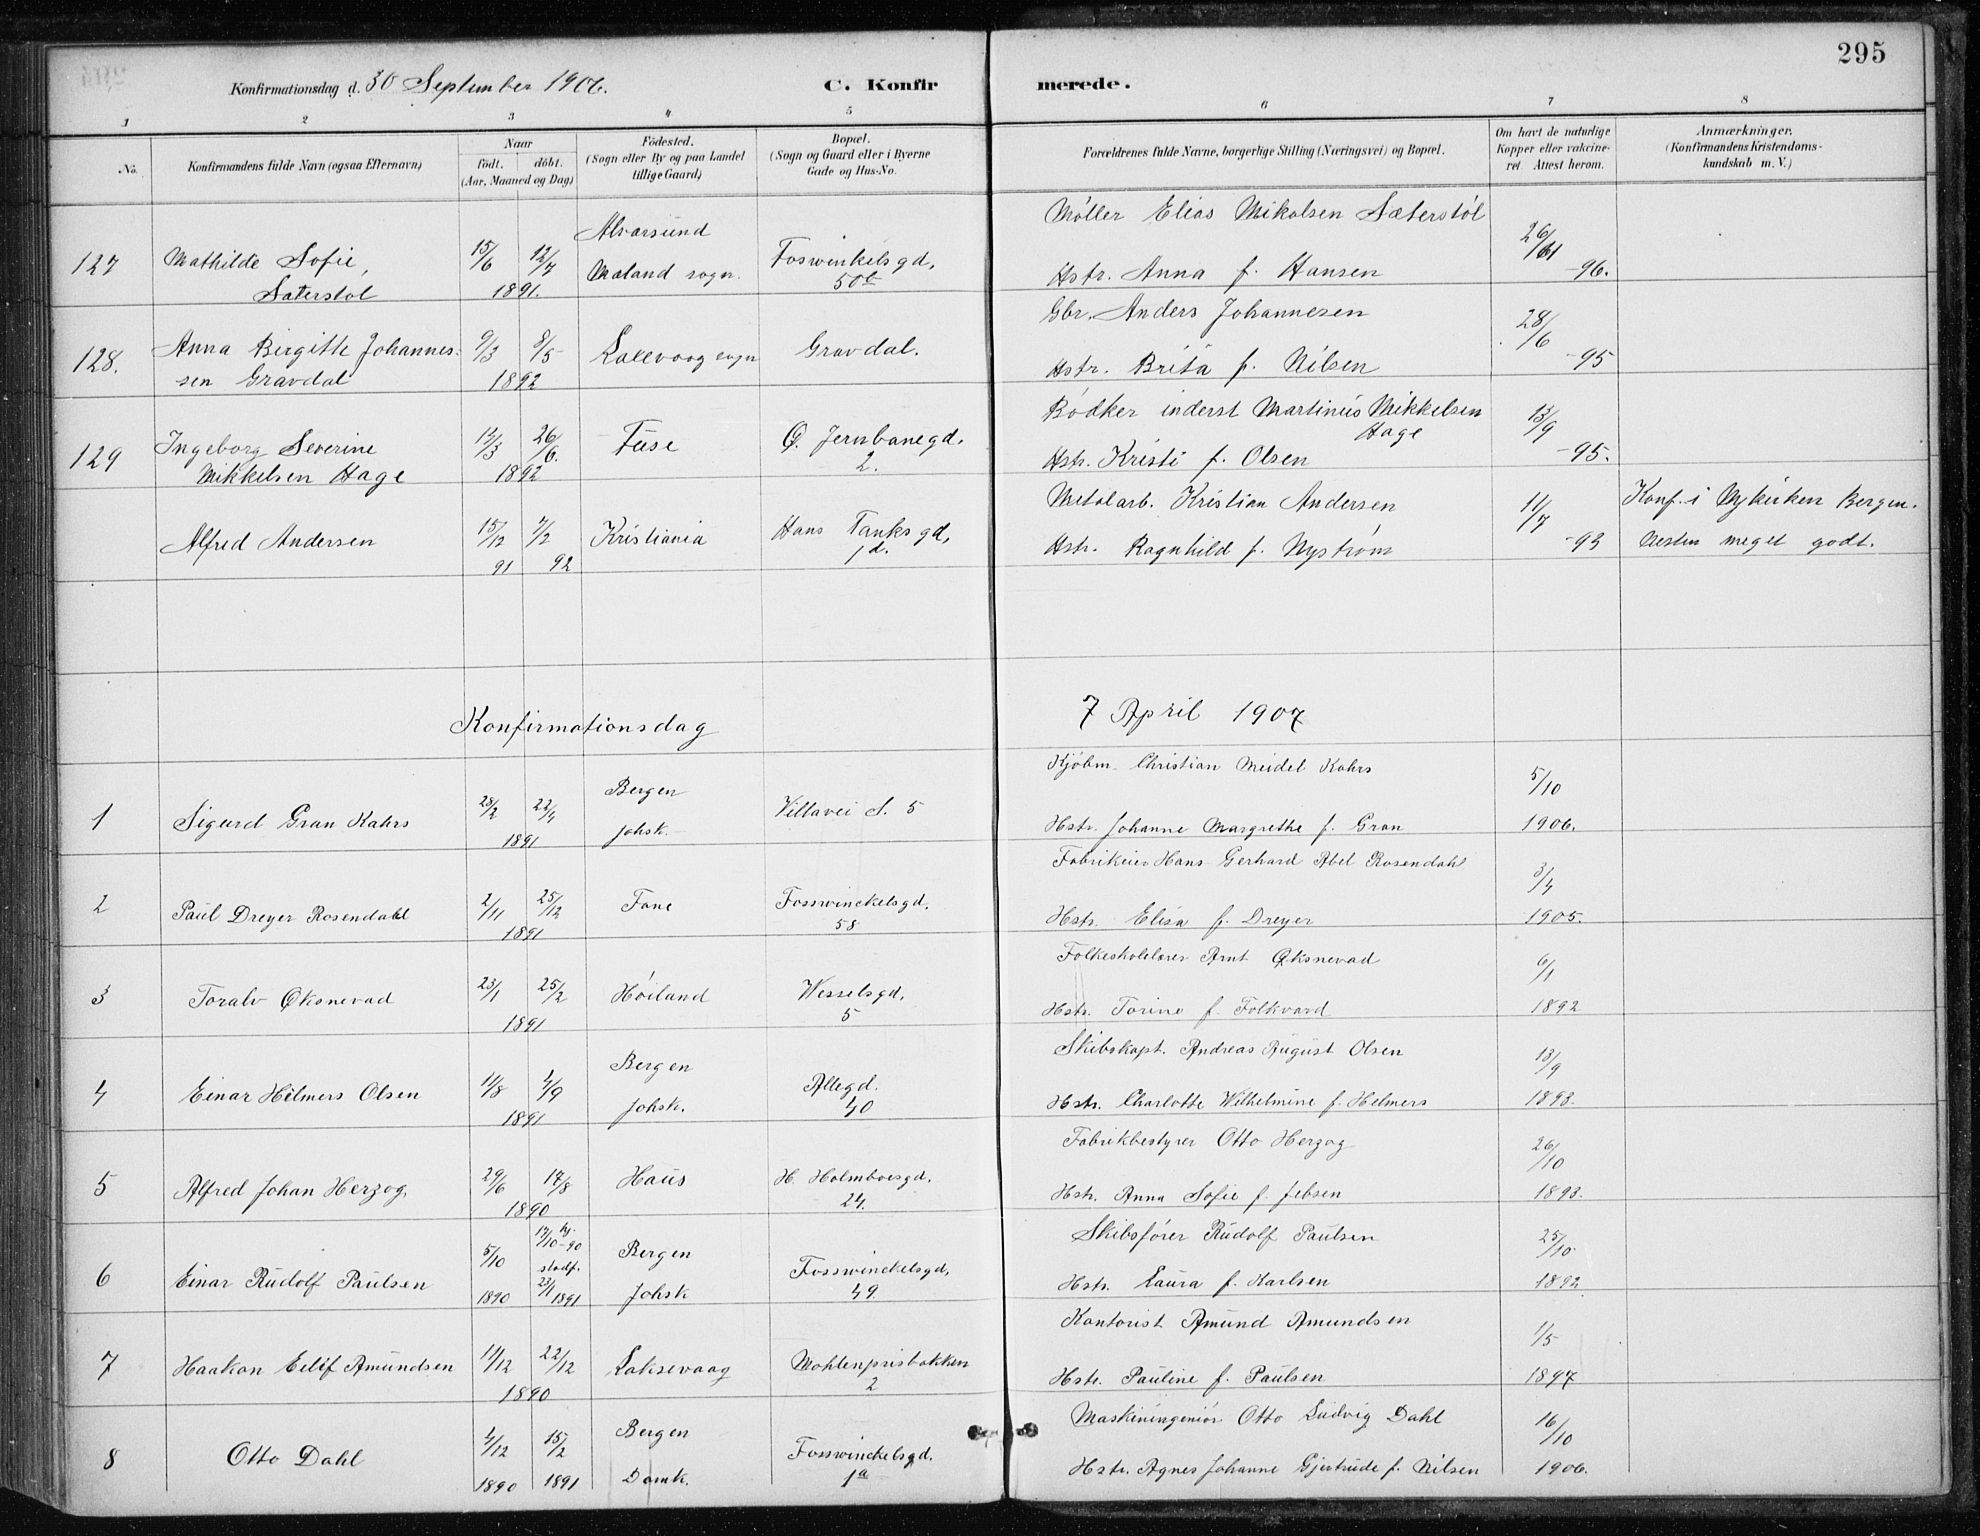 295
Konfirmationsdag d. 30 September 1906.
C. Konfirmerede.
1 2 3 4 5 6 7 8
No.
Konfirmandens fulde Navn (ogsaa Efternavn)
Naar
født. døbt.
(Aar, Maaned og Dag)
Fødested.
(Sogn eller By og paa Landet
tillige Gaard)
Bopæl.
(Sogn og Gaard eller i Byerne
Gade og Hus-No.
Forældrenes fulde Navne, borgerlige Stilling (Næringsvei) og Bopæl.
Om havt de naturlige
Kopper eller vakcine-
ret. Attest herom.
Anmærkninger.
(Konfirmandens Kristendoms-
kundskab m. V.)
127 Mathilde Sofie,
Sæterstøl
15/6 12/7
1891.
Alvarsund
Mæland sogn.
Foswinkelsgd,
50b
Møller Elias Mikalsen Sæterstøl
Hstr. Anna f. Hansen
26/61
-96.
128. Anna Birgitte Johannes-
sen Gravdal
9/3 8/5
1892
Laxevaag sogn
Gravdal.
Gbr. Anders Johannesen
Hstr. Brita f. Nilsen
28/6
-95
129 Ingeborg Severine
Mikkelsen Hage
13/3 26/6.
1892
Fuse
Ø. Jernbanegd.
2.
Bødker inderst Martinus Mikkelsen
Hage
Hstr. Kristi f. Olsen
13/9
-95.
Alfred Andersen
15/12 7/2
91 92
Kristiania
Hans Tanksgd,
1d.
Metalarb. Kristian Andersen
Hstr. Ragnhild f. Nystrøm
11/7
-93
Konf. i Nykirken Bergen.
Nesten meget godt.
Konfirmationsdag 7 April 1907
1 Sigurd Gran Kahrs
28/2 22/4
1891
Bergen
Johsk.
Villavei S. 5
Kjøbm. Christian Meidel Kahrs
Hstr. Johanne Margrethe f. Gran
5/10
1906.
2 Paul Dreyer Rosendahl
2/11 25/12
1891
Fane
Fosswinckelsgd.
58
Fabrikeier Hans Gerhard Abel Rosendahl
Hstr. Elisa f. Dreyer
3/4
1905.
3 Toralv Øksnevad
23/1 25/2
1891
Høiland
Wesselsgd,
5
Folkeskolelærer Arnt Øksnevad
Hstr. Torine f. Folkvard
6/1
1892
4 Einar Helmers Olsen
11/8 4/9
1891
Bergen
Johsk.
Allegd.
40
Skibskapt. Andreas August Olsen
Hstr. Charlotte Wilhelmine f. Helmers
13/9
1893.
5 Alfred Johan Herzog
29/6 17/8
1890
Haus
H. Holmboesgd.
24.
Fabrikbestyrer Otto Herzog
Hstr. Anna Sofie f. Jebsen
26/10
1893.
6 Einar Rudolf Paulsen
5/10
1890
17/10-90 hj.
stadf.
23/1 1891
Bergen
Johsk
Fosswinckelsgd,
49.
Skibsfører Rudolf Paulsen
Hstr. Laura f. Karlsen
25/10
1892
7 Haakon Eilif Amundsen
14/12 22/12
1890
Laksevaag
Mohlenprisbakken
2
Kontorist Amund Amundsen
Hstr. Pauline f. Paulsen
1/5
1897
8 Otto Dahl
4/12 15/2
1890 1891
Bergen
Domk.
Fosswinckelsgd.
1a
Maskiningeniør Otto Ludvig Dahl
Hstr. Agnes Johanne Gjertrude f. Nilsen
16/10
1906.